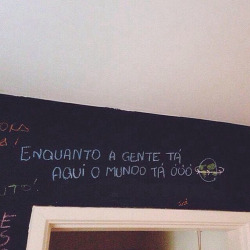 ENQUANTO A GENTE TÁ
AQUI O MUNDO TÁ ÓÓÓ